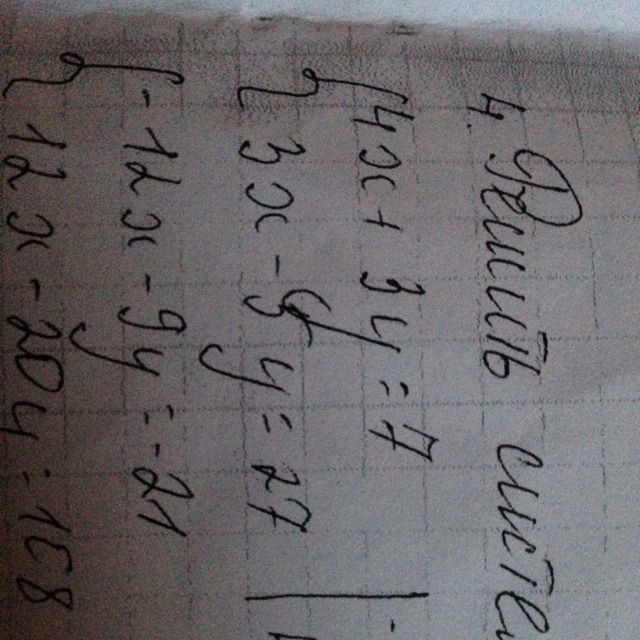 4. Решить систе
4x + 3y = 7 | -
3x - 5y = 27 |
-12x - 9y = -21
12x - 20y = 108